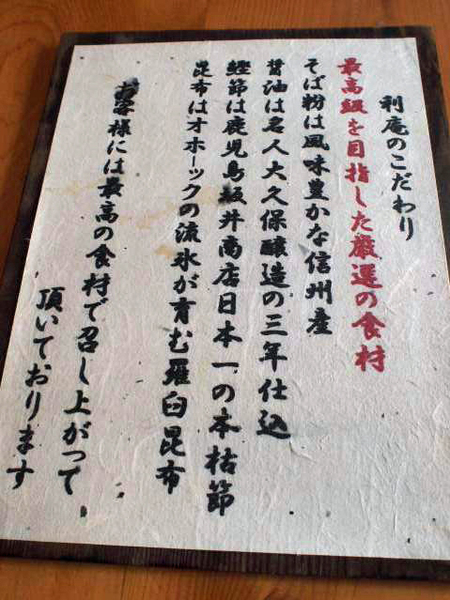 利庵のこだわり
最高級を目指した厳選の食材
そば粉は風味豊かな信州産
醤油は名人大久保醸造の三年仕込
鰹節は鹿児島坂井商店日本一の本枯節
昆布はオホーツクの流氷が育む羅臼昆布
お客様には最高の食材で召し上がって
頂いております